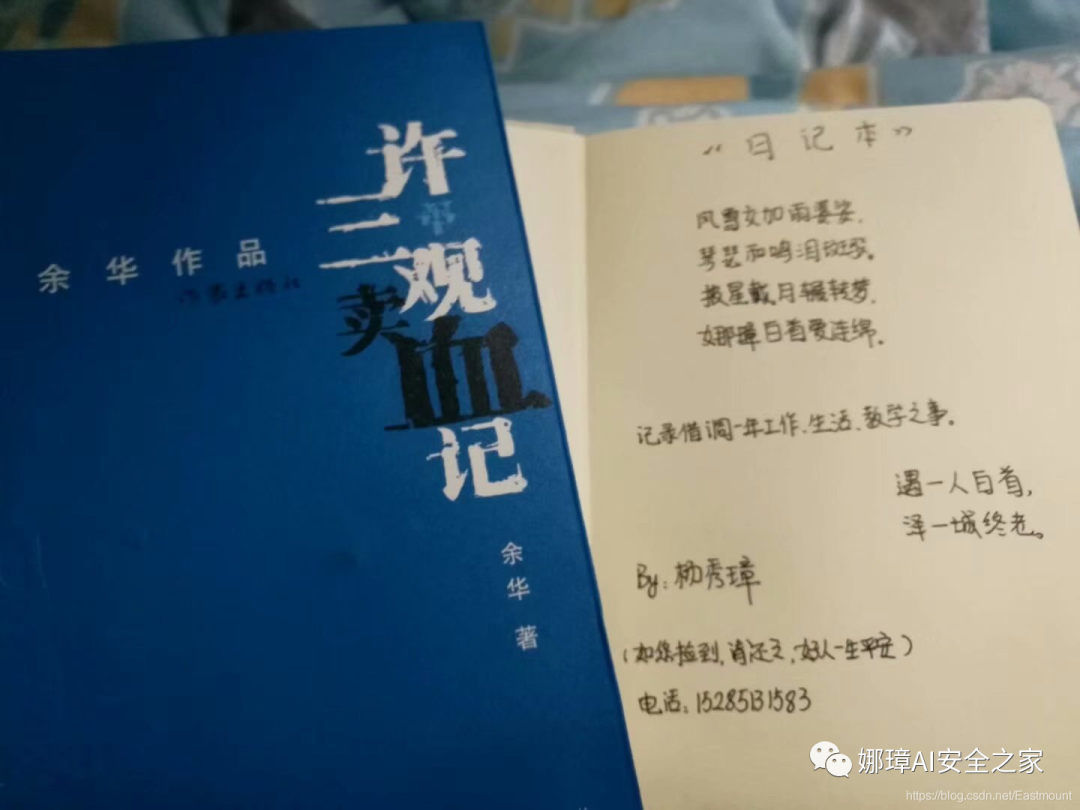 余华作品
作家出版社
许三观卖血记
余华 著
“日记本”
风雪交加雨婆娑,
琴瑟和鸣泪斑驳。
披星戴月辗转梦,
娜璋白首爱连绵。
记录借调一年工作、生活、教学之事。
遇一人白首,
择一城终老。
By: 杨秀璋
(如您捡到,请还之,好人一生平安)
电话: 15285131583
娜璋AI安全之家
https://blog.csdn.net/Eastmount